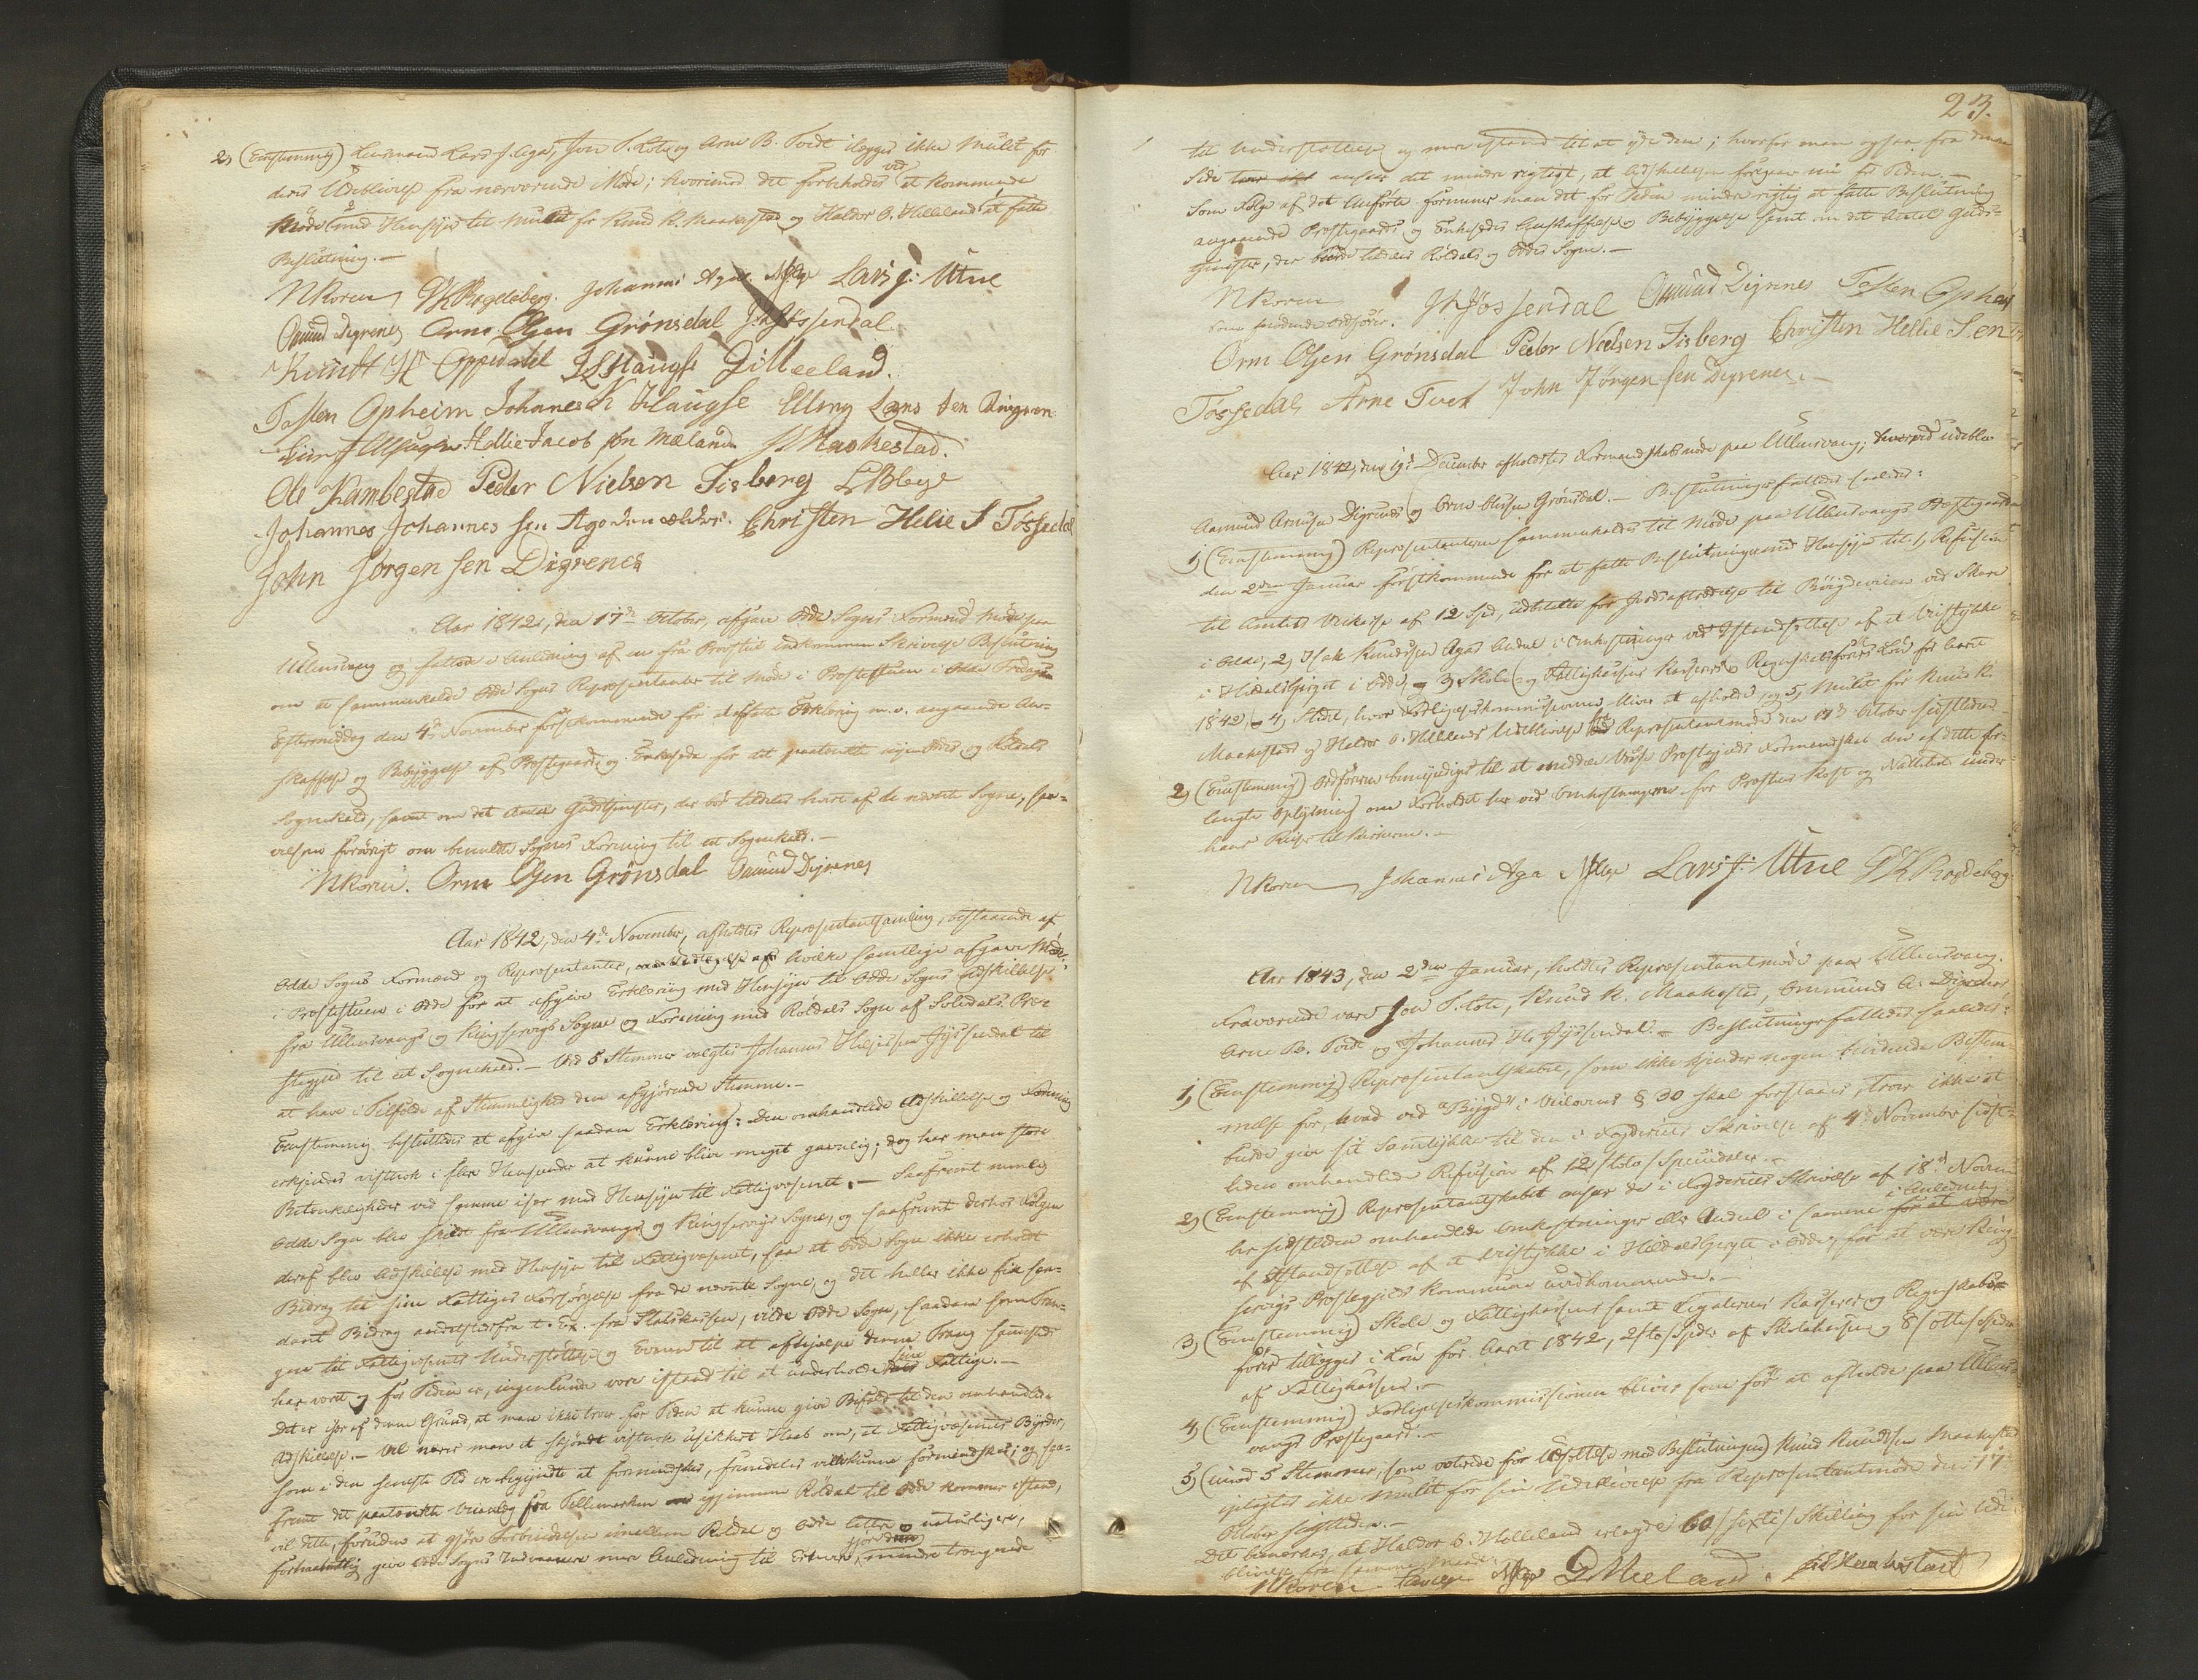 2, (Eenstemmig) Lensmand Lars J. Aga, Jon S. Lote og Arne B. Tveit ilegges ikke Mulct for
deres Udeblivelse fra nærværende Møde; hvorimod det forbeholdes ved et kommende
Møde med Hensyn til Mulct for Knud K. Maakestad og Haldor O. Helleland at fatte
Beslutning.—
N Koren Johannes Aga Lars J: Utne
Omund Digrenes Orm Olsen Grónsdal
Oppedal
Tosten Opheim Johanes K Haugse Elling
Hellie Jacobsøn Mæland Maakestad.
Ole Kambestad Peder Nielsen Tisberg
Johannes Johannessen Aga den ældre. Christen Helie S Tósseda
John Jórgensen Digrenes
Aar 1842, den 17de October, afgave Odde Sogns Formænd Møde paa
Ullensvang og fattede i Anledning af en fra Provstiet indkommen Skrivelse Beslutning
om at sammenkalde Odde Sogns Repræsentanter til Møde i Præstestuen i Odde Fredags
Eftermiddag den 4de November førstkommende for at afgive Erklæring m.v. angaaende An-
skaffelse og Bebyggelse af Præstegaard og Enkesæde for det paatænkte nye Odde og Røldals
Sognekald, samt om det Antal Gudstjenester, der bør tildeles hvert af de nævnte Sogne, saa-
velsom forøvrigt om bemeldte Sognes Forening til et Sognekald.—
N Koren. Orm Olsen Grónsdal Omund Digrenes
Aar 1842, den 4de November, afholdtes Repræsentantsamling, bestaaende af
Odde Sogns Formænd og Repræsentanter, hvilke samtlige afgave Møde,
i Præstestuen i Odde for at afgive Erklæring med Hensyn til Odde Sogns Adskillelse
fra Ullensvangs og Kingservigs Sogne og Forening med Røldals Sogn af Suledals Præ-
stegjeld til et Sognekald.— Ved 5 Stemmer valgtes Johannes Helgesen Jøssendal til
at have i Tilfælde af Stemmelighed den afgjørende Stemme.—
Eenstemmig besluttedes at afgive saadan Erklæring: Den omhandlede Adskillelse og Forening
erkjendes vistnok i flere Henseender at kunne blive meget gavnlig; dog har man store
Betænkeligheder ved samme især med Hensyn til Fattigvæsenet.— Saafremt nemlig
Odde Sogn blev skildt fra Ullensvangs og Kingservigs Sogne, og saafremt derhos Følgen
deraf blev Adskillelse med Hensyn til Fattigvæsenet, saa at Odde Sogn ikke erholdt
Bidrag til sine Fattiges Forsørgelse fra de nævnte Sogne, og det heller ikke fik saa-
dant Bidrag andetstedsfra t. Ex. fra Statskassen, vilde Odde Sogn, saadan som Tran-
gen til Fattigvæsenets Understøttelse og Evnen til at afhjelpe denne Trang sammesteds
har været og for Tiden er, ingenlunde være istand til at underholde sine Fattige.—
Det er især af denne Grund, at man ikke troer for Tiden at kunne give Bifald til den omhandlede
Adskillelse.— Vel nærer man et skjøndt vistnok usikkert Haab om, at Fattigvæsenets Byrder,
som i den seneste Tid ere begyndte at formindskes, fremdeles ville kunne formindskes; og saa-
fremt det paatænkte Veianlæg fra Tellemarken igjennem Røldal til Odde kommer istand,
vil dette, foruden at gjøre Forbindelsen imellem Røldal og Odde lettere og naturligere,
forhaabentlig give Odde Sogns Indvaanere mere Anledning til Erhverv, gjøre dem mindre trængende
23.
til Understøttelse og mere istand til at yde den; hvorfor man ogsaa fra denne
Side anser det mindre rigtigt, at Adskillelsen foregaar nu for Tiden.—
Som Følge af det Anførte formener man det for Tiden mindre rigtig at fatte Beslutning
angaaende Præstegaards og Enkesædes Anskaffelse og Bebyggelse samt om det Antal Guds-
tjenester, der burde tildeles Røldals og Oddes Sogne.—
N Koren JHJóssendal Omund Digrenes Tosten Opheim
som fungerende Ordfører.
Orm Olsen Grónsdal Peder Nielsen Tisberg Christen Hellie Sen
Tóssedal, Arne Tvet John Jórgensen Digrenes.—
Aar 1842, den 19de December afholdtes Formandskabsmøde paa Ullensvang; hvorved udeblev
Aamund Arnesen Digrenes og Orm Olsen Grønsdal.— Beslutninger fattedes saaledes:
1, (Eenstemmig) Repræsentanterne sammenkaldes til Møde paa Ullensvangs Præstegaard
den 2den Januar førstkommende for at fatte Beslutninger med Hensyn til: 1, Refusion
til Amtets Veikasse af 12 Spd, udtællte for Jordafstaaelse til Bøigdeveien ved Skare
i Odde, 2, Isak Knudsen Agas Andel i Omkostninger ved Istandsættelse af et Veistykke
i Hildalsbjerget i Odde, 3, Skole- og Fattigkassens Kasserers og Regnskabsførers Løn for Aaret
1842, 4, Stedet, hvor Forligelseskommissionen bliver at afholde, og 5, Mulct for Knud K.
Maakestads og Haldor O. Hellelands Udeblivelse fra Repræsentantmødet den 17de October sidstleden.—
2, (Eenstemmig) Ordføreren bemyndiges til at meddele Voss Præstegjelds Formandskab den af dette for-
langte Oplysning om Forholdet her ved Omkostningerne for Præstens Kost og Natteleie under
hans Reiser til Kirkerne.—
N Koren Johannes Aga Lars J: Utne
Aar 1843, den 2den Januar, holdtes Repræsentantmøde paa Ullensvang.
Fraværende vare Jon S. Lote, Knud K. Maakestad, Ommund A. Digrenes
Arne B. Tveit og Johannes H. Jøssendal.— Beslutninger fattedes saaledes:
1, (Eenstemmig) Repræsentantskabet, som ikke kjender nogen bindende Bestem-
melse for, hvad ved "Bygd" i Veilovens § 30 skal forstaaes, troer ikke at
burde give sit Samtykke til den i Fogderiets Skrivelse af 4de November sidst-
leden omhandlede Refusion af 12/tolv/ Speciedaler.—
2, (Eenstemmig) Repræsentantskabet anser de i Fogderiets Skrivelse af 18de Novem-
ber sidstleden omhandlede Omkostninger eller Andeel i samme i Anledning
af Istandsættelse af et Veistykke i Hildalsbjerget i Odde for at være King-
servigs Præstegjelds Kommune uvedkommende.—
3, (Eenstemmig) Skole og Fattigkassens samt Legaternes Kasserer og Regnskabs-
fører tillægges i Løn for Aaret 1842, 2/to/ Spdlr af Skolekassen og 8/otte/ Spdlr
af Fattigkassen.—
4, (Eenstemmig) Forligelseskommissionen bliver som før at afholde paa Ullens-
vangs Præstegaard.—
5, (imod 5 Stemmer, som voterede for Udsættelse med Beslutningen) Knud Knudsen Maakestad
ilægtes ikke Mulct for sin Udeblivelse fra Repræsentantmødet den 17de
October sidstleden.—
Det bemærkes, at Haldor O. Helleland erlagde 60/sexti/ Skilling for sin Ude-
blivelse fra samme Møde.
N Koren G Mæland.